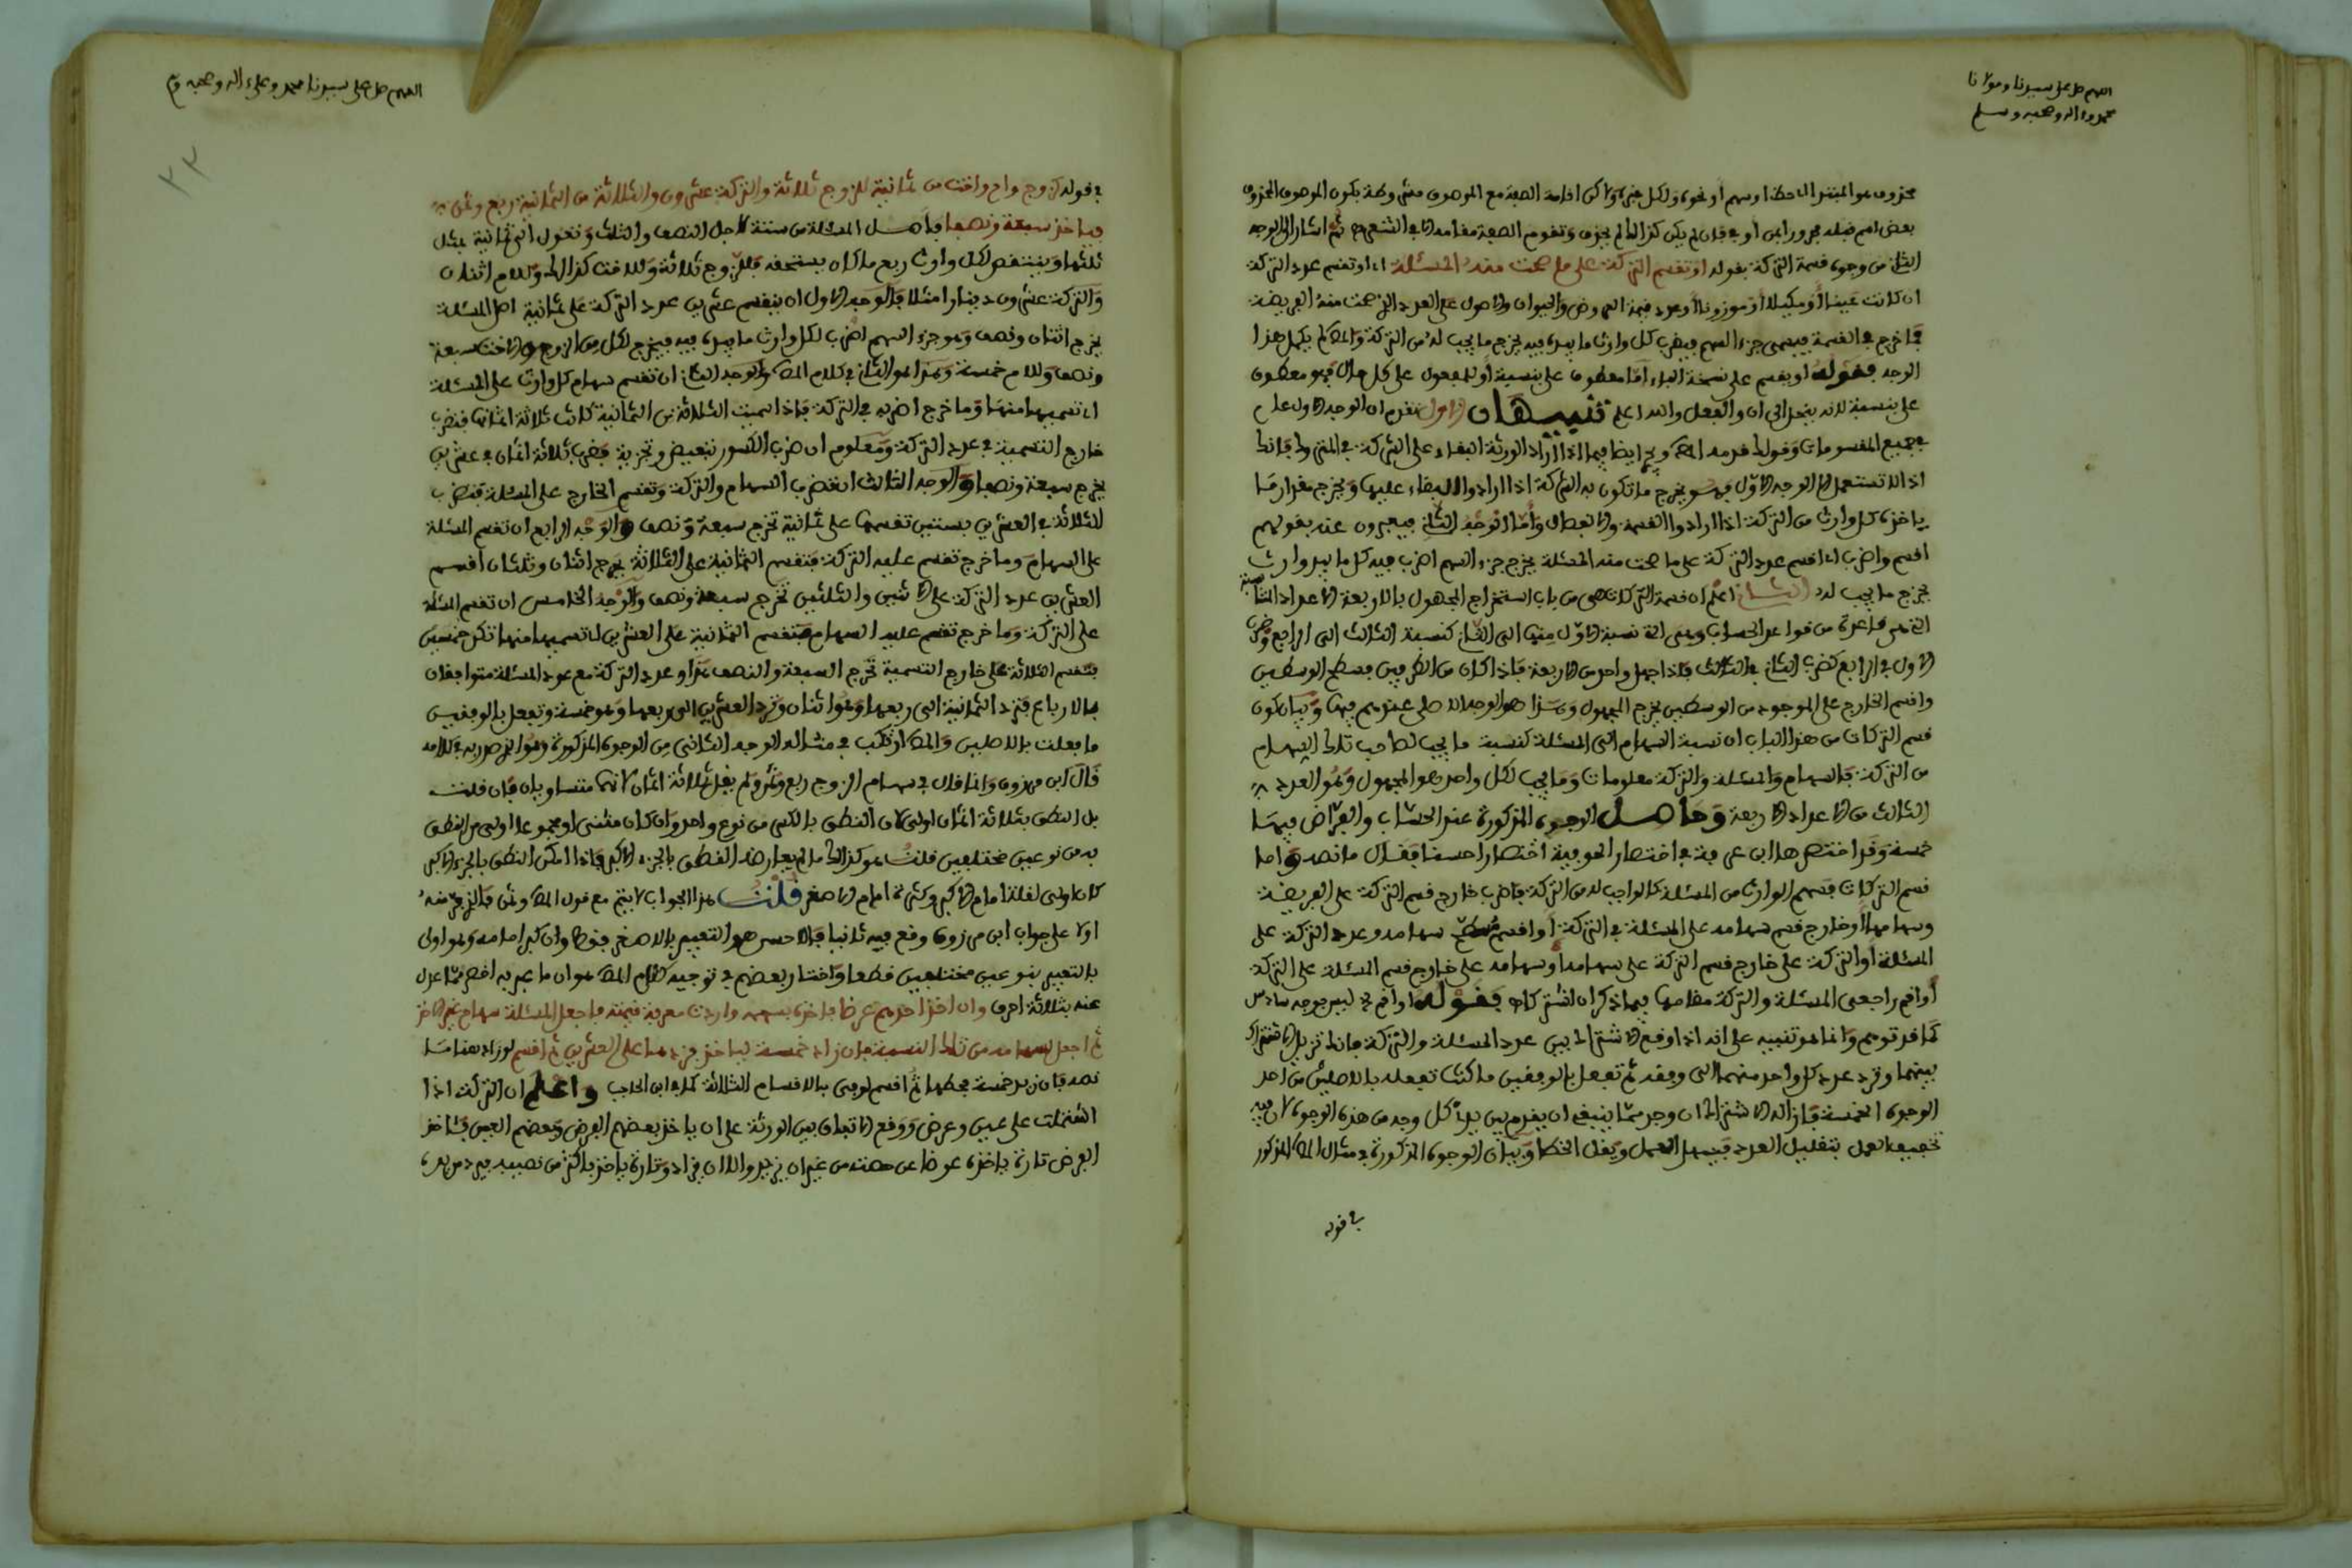 اللهم صل على سيدنا ومولانا
محمد وءاله وصحبه وسلم
محذوف هو المبتدا اي حظ او سهم او نحوه ولكل خبره ولاكن اقامة الصفة مع الموصوف
بعض اسم قبله مجرور بمن او في فان لم يكن كذالك لم يحذف وتقوم الصفة مقامه الا في الشعر ثم اشار الى الوجه
الثاني من وجوه قسمة التركة بقوله او تقسم التركة على ما صحت منه المسئلة اي او تقسم عدد التركة
ان كانت عينا او مكيلا او موزونا او عدد قيمة العروض والحيوان والاصول على العدد الذي صحت منه الفريضة
فما خرج في القسمة فيسمى جزء السهم فيضرب كل وارث ما بيده فيه يخرج ما يجب له من التركة والمص لم يكمل هذا
الوجه فقوله او يقسم على نسخة الياء اما معطوف على بنسبة او للمفعول على كل حال فهو معطوف
على بنسبة لانه ينحل الى ان والفعل والله اعلم تنبيهان الاول تقدم ان الوجه الاول عام
في جميع المقسومات وقوله ايضا فيما اذا اراد الورثة البقاء على الشركة في
اذا لا تستعمل الا الوجه الاول فهو يخرج ما تكون به الشركة اذا ارادوا البقاء عليها ويخرج مقدار ما
ياخذه كل وارث من التركة اذا ارادوا القسمة والانفصال واما الوجه الثاني فيعبرون عنه بقولهم
اقسم واضرب اي اقسم عدد التركة على ما صحت منه المسئلة يخرج جزء السهم اضرب فيه كل ما بيد وارث
يخرج ما يجب له الثاني اعلم ان قسمة التركات هي من باب استخراج المجهول بالاربعة الاعداد المتناسبة
التي هي قاعدة من قواعد الحساب وهي التي نسبة الاول منها الى الثاني كنسبة الثالث الى الرابع وضرب
الاول في الرابع كضرب الثاني في الثالث فاذا جهل واحد من الاربعة فاذا كان من الطرفين فسطح الوسطين
واقسم الخارج على الموجود من الوسطين يخرج المجهول وهذا هو الوجه الاصلي عندهم فيها وبيان كون
قسم التركات من هذا الباب ان نسبة السهام الى المسئلة كنسبة ما يجب لصاحب تلك السهام
من التركة فالسهام والمسئلة والتركة معلومات وما يجب لكل واحد هو المجهول وهو العدد
الثالث من الاعداد الاربعة وحاصل الوجوه المذكورة عند الحساب والفراض فيها
خمسة وقد اختصرها ابن عرفة في اختصار الحوفية اختصارا حسنا فقال ما نصه واما
قسم التركات فسهم الوارث من المسئلة كالواجب له من التركة فاضرب خارج قسم التركة على الفريضة
وسهامها او خارج قسم سهامه على المسئلة في التركة او اقسم مسطح سهامه وعدد التركة على
المسئلة او التركة على خارج قسم التركة على سهامه او سهامه على خارج قسم المسئلة على التركة
او اقم راجعي المسئلة والتركة مقامهما فيما ذكر ان اشتركا فقوله او اقم الخ ليس بوجه سادس
كما قد توهم وانما هو تنبيه على انه اذا وقع الاشتراك بين عدد المسئلة والتركة فانك تزيل الاشتراك
بينهما وترد عدد كل واحد منهما الى وفقه ثم تفعل بالوفقين ما كنت تفعله بالاصلين من احد
الوجوه الخمسة فازالة الاشتراك ان وجد مما ينبغي ان يقدم بين يدي كل وجه من هذه الوجوه لان فيه
تخفيف العمل بتقليل العدد فيسهل العمل ويقل الخطا وبيان الوجوه المذكورة في مثال المص المذكور
في قوله
اللهم صل على سيدنا محمد وعلى ءاله وصحبه وسلم
٢٣
في قوله كزوج وام واخت من ثمانية للزوج ثلاثة والتركة عشرون والثلاثة من الثمانية ربع وثمن
فياخذ سبعة ونصفا فاصل المسئلة من ستة لاجل النصف والثلث وتعول الى ثمانية بمثل
ثلثها وينتقص لكل وارث ربع ما كان يستحقه فللزوج ثلاثة وللاخت كذالك وللام اثنان
والتركة عشرون دينارا مثلا فالوجه الاول ان يقسم عشرين عدد التركة على ثمانية اصل المسئلة
يخرج اثنان ونصف وهو جزء السهم اضرب لكل وارث ما بيده فيه فيخرج لكل من الزوج والاخت سبعة
ونصف وللام خمسة وهذا هو الثاني في كلام المص والوجه الثاني ان تقسم سهام كل وارث على المسئلة
اي تسميها منها وما خرج اضربه في التركة فاذا سميت الثلاثة من الثمانية كانت ثلاثة اثمانها فتضرب
خارج التسمية في عدد التركة ومعلوم ان ضرب الكسور تبعيض وتجزية فضرب ثلاثة اثمان في عشرين
يخرج سبعة ونصفا والوجه الثالث ان تضرب السهام والتركة وتقسم الخارج على المسئلة فتضرب
الثلاثة في العشرين بستين تقسمها على ثمانية تخرج سبعة ونصف والوجه الرابع ان تقسم المسئلة
على السهام وما خرج تقسم عليه التركة فتقسم الثمانية على الثلاثة يخرج اثنان وثلثان اقسم
العشرين عدد التركة على الاثنين والثلثين تخرج سبعة ونصف والوجه الخامس ان تقسم المسئلة
على التركة وما خرج تقسم عليه السهام فتقسم الثمانية على العشرين اي تسميها منها تكن خمسين
فتقسم الثلاثة على خارج التسمية تخرج السبعة والنصف هذا وعدد التركة مع عدد المسئلة متوافقان
بالارباع فترد الثمانية الى ربعها وهو اثنان وترد العشرين الى ربعها وهو خمسة وتفعل بالوفقين
ما فعلت بالاصلين والمص ارتكب في مثاله الوجه الثاني من الوجوه المذكورة وهو الذي صدر به في كلامه
قال ابن مرزوق وانما قال في سهام الزوج ربع وثمن ولم يقل ثلاثة اثمان لانهما متساويان فان قلت
بل النطق بثلاثة اثمان اولى لان النطق بالكسر من نوع واحد وان كان مثنى او مجموعا اولى من النطق
به من نوعين مختلفين قلت هو كذالك ما لم يعارضه النطق بالجزء الاكبر فاذا امكن النطق بالجزء الاكبر
كان اولى لقلة امام الاكبر وكثرة امام الاصغر قلت هذا الجواب لا يتم مع قول المص وثمن فالذي فر منه
اولا على جواب ابن مرزوق وقع فيه ثانيا فالاحسن هو التعبير بالاصغر فقط وان كبر امامه وهو اولى
بالتعبير بنوعين مختلفين قطعا واختار بعضهم في توجيه كلام المص هو ان ما عبر به اخصر مما عدل
عنه بثلاثة احرف وان اخذ احدهم عرضا فاخذه بسهمه واردت معرفة قيمته فاجعل المسئلة سهام غير الاخذ
ثم اجعل لسهامه من تلك النسبة فان زاد خمسة لياخذ فزدها على العشرين ثم اقسم
نصه فان زيد خمسة فحطها ثم اقسم لوفى بالاقسام الثلاثة كما في ابن الحاجب واعلم ان التركة اذا
اشتملت على عين وعرض ووقع الاتفاق بين الورثة على ان ياخذ بعضهم العرض وبعضهم العين فئاخذ
العرض تارة ياخذه عوضا عن حصته من غير ان يزيد ولا ان يزاد وتارة ياخذ باكثر من نصيبه فيرد من يده